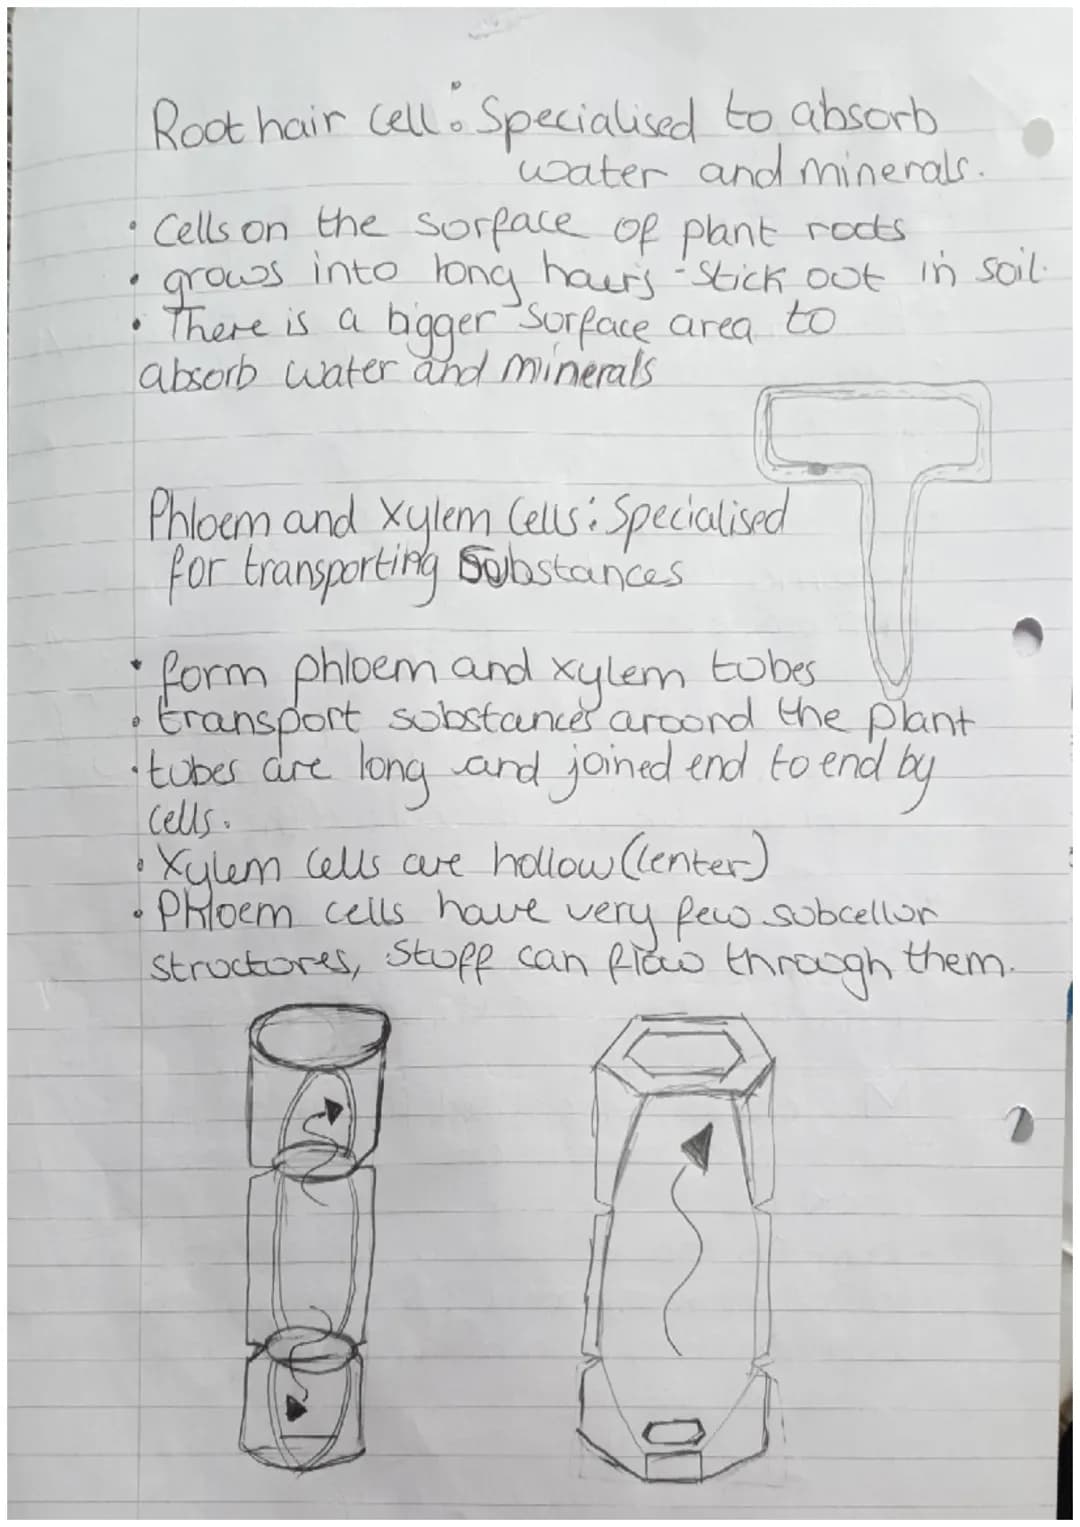 Root hair cell: Specialised to absorb
water and minerals.
• Cells on the surface of plant roots
• grows into long hairs - Stick out in soil.
• There is a bigger surface area to
absorb water and minerals
Phloem and Xylem Cells: Specialised
for transporting Substances
• form phloem and xylem tubes
• transport substances around the plant
• tubes are long and joined end to end by
cells.
• Xylem cells are hollow (center)
• Phloem cells have very few subcellur
structures, Stuff can flow through them.